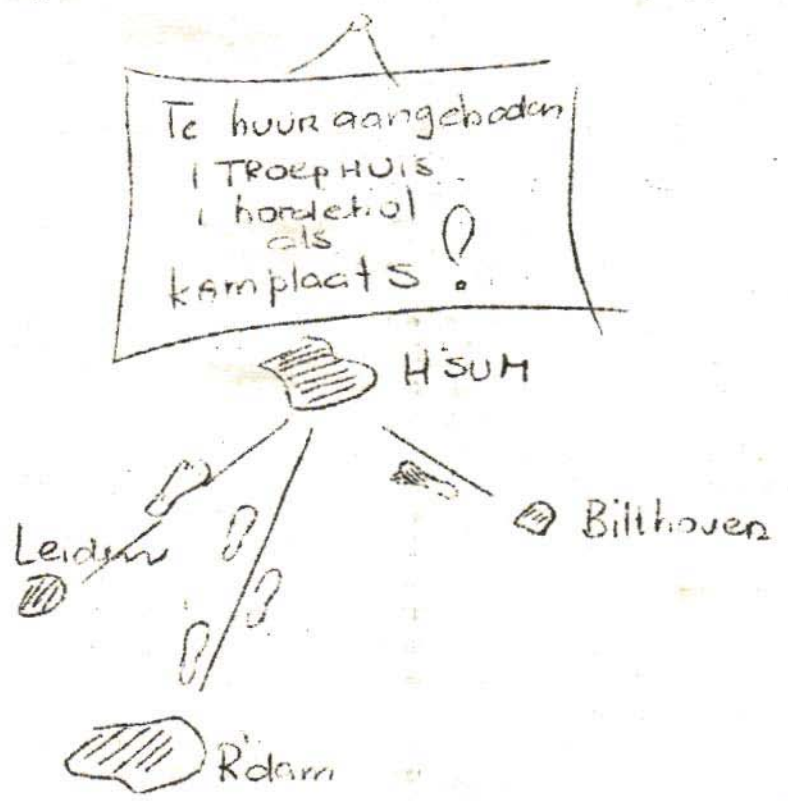 Te huur aangeboden
1 TROEPHUIS
1 hordehol
als
kamplaats!
H'SUM
Leiden
Bilthoven
R'dam